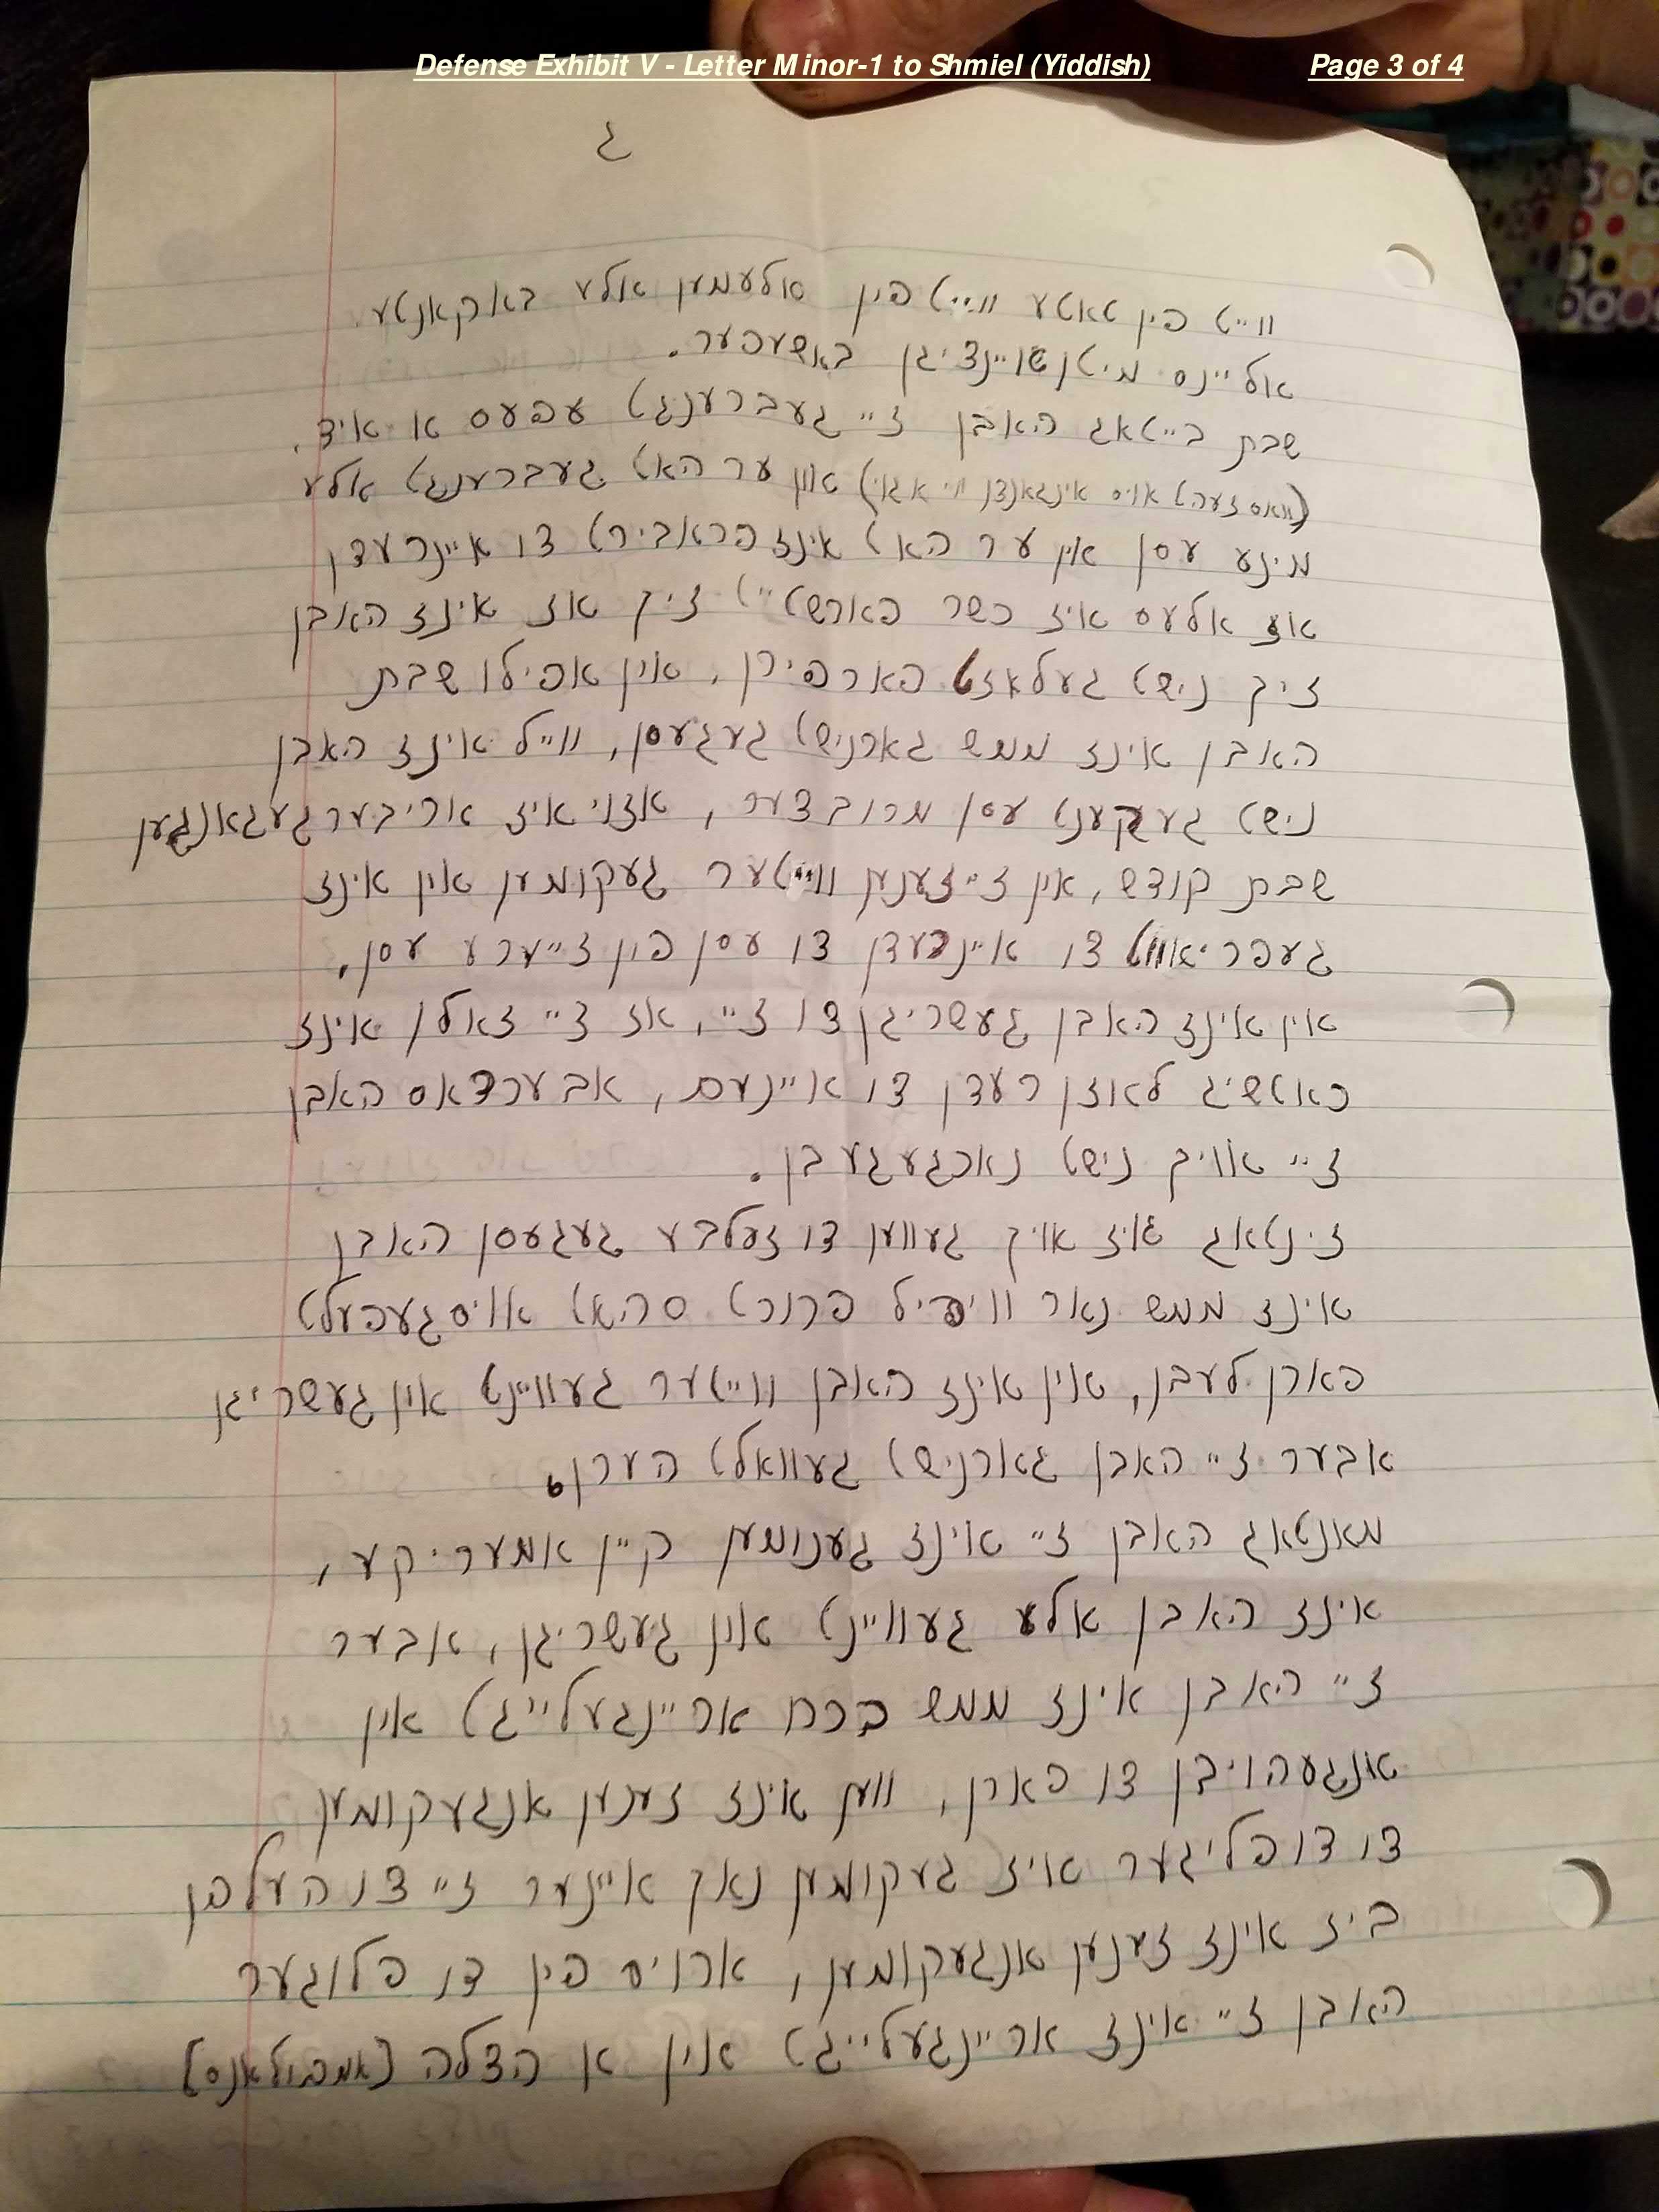 Defense Exhibit V - Letter Minor-1 to Shmiel (Yiddish) Page 3 of 4
ג
ווייט פין טאטע ווייט פין סולעמען אלע באקאנטע
אליינס מיטן שויינציגן באשעפער.
שבת בייטאג האבן זיי געברענגט עפעס א איד.
(וואס זעהט אויס אינגאנצן ווי א גוי) און ער האט געברענגט אלע
מינע עסן אין ער האט אינז פראבירט צו איינרעדן
אז אלעס איז כשר פארשטייט זיך אז אינז האבן
זיך נישט געלאזט פארפירן, אין אפילו שבת
האבן אינז ממש גארנישט געגעסן, ווייל אינז האבן
נישט געקענט עסן מרוב צער, אזוי איז אריבערגעגאנגען
שבת קודש, אין זיי זענען ווייטער געקומען אין אינז
געפריאווט צו איינרעדן צו עסן פון זייערע עסן.
אין אינז האבן געשריגן צו זיי, אז זיי זאלן אינז
כאטשיג לאוזן רעדן צו איינעם, אבער דאס האבן
זיי אויך נישט נאכגעגעבן.
זינטאג איז אויך געווען דו זעלבע געגעסן האבן
אינז ממש נאר וויפיל פרורט סהאט אויסגעפעלט
פארן לעבן, אין אינז האבן ווייטער געוויינט אין געשריגן
אבער זיי האבן גארנישט געוואלט הערן.
מאנטאג האבן זיי אינז גענומען קיין אמעריקע,
אינז האבן אלע געוויינט אין געשריגן, אבער
זיי האבן אינז ממש בכח אריינגעלייגט אין
אונגעהויבן צו פארן, ווען אינז זענען אנגעקומען
צו דו פליגער איז געקומען נאך איינער זיי צו העלפן
ביז אינז זענען אנגעקומען, ארויס פין דו פלוגער
האבן זיי אינז אריינגעלייגט אין א הצלה [אמבולאנס]